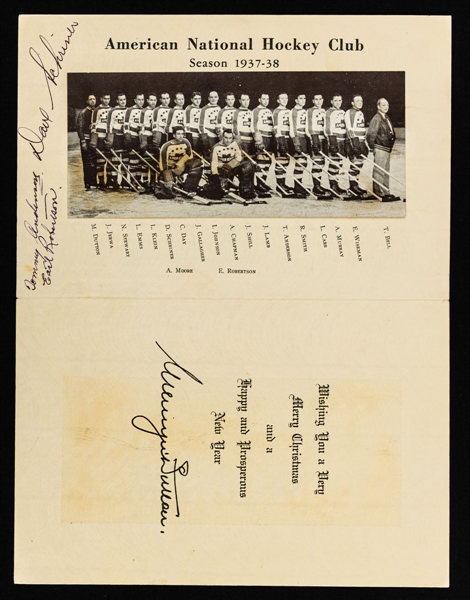 American National Hockey Club
Season 1937-38
M. Dutton
J. Jerwa
N. Stewart
L. Emms
L. Klein
D. Schriner
C. Day
J. Gallagher
I. Johnson
A. Chapman
J. Shill
J. Lamb
T. Anderson
R. Smith
L. Carr
A. Murray
E. Wiseman
T. Bell
A. Moore
E. Robertson
Tommy Anderson
Earl Robinson.
Dave Schriner
Wishing You a Very
Merry Christmas
and a
Happy and Prosperous
New Year
Mervyn Dutton.